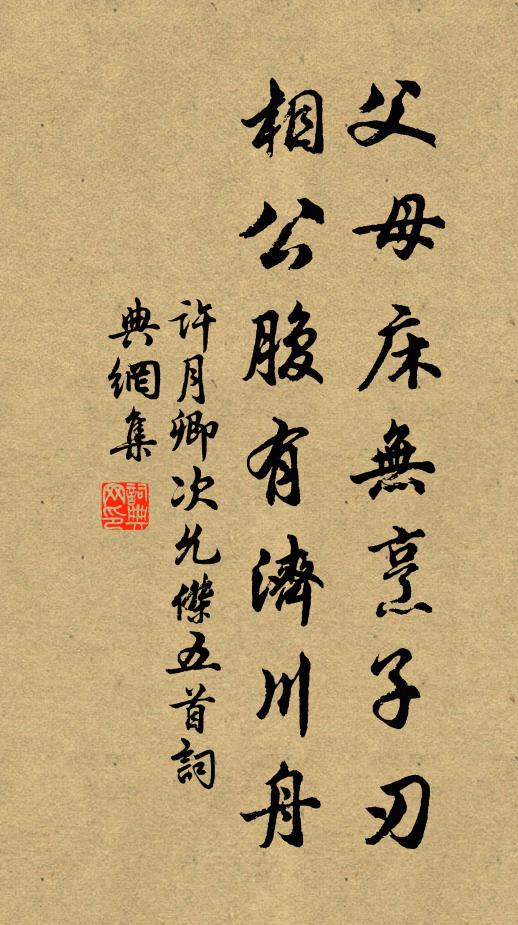 父母床無烹子刃
相公腹有濟川舟
許月卿次允傑五首詞
典網集
詞典
网印